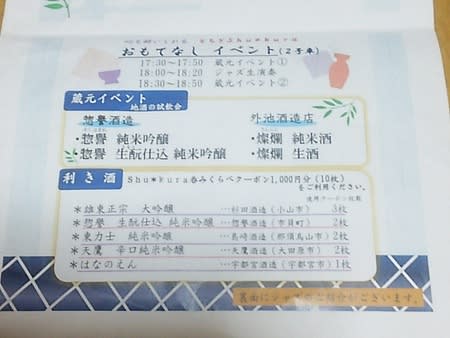 おもてなし イベント(2号車)
17:30〜17:50 蔵元イベント①
18:00〜18:20 ジャズ生演奏
18:30〜18:50 蔵元イベント②
蔵元イベント
地酒の試飲会
惣譽酒造
・惣譽 純米吟醸
・惣譽 生酛仕込 純米吟醸
外池酒造店
・燦爛 純米酒
・燦爛 生酒
利き酒 Shu*kura呑みくらべクーポン1,000円分(10枚)
をご利用ください。
使用クーポン枚数
*雄東正宗 大吟醸 …杉田酒造(小山市) 3枚
*惣譽 生酛仕込 純米吟醸 …惣譽酒造(市貝町) 2枚
*東力士 純米吟醸 …島崎酒造(那須烏山市) 2枚
*天鷹 辛口純米吟醸 …天鷹酒造(大田原市) 2枚
*はなのえん …宇都宮酒造(宇都宮市) 1枚
裏面にジャズのご紹介がございます。